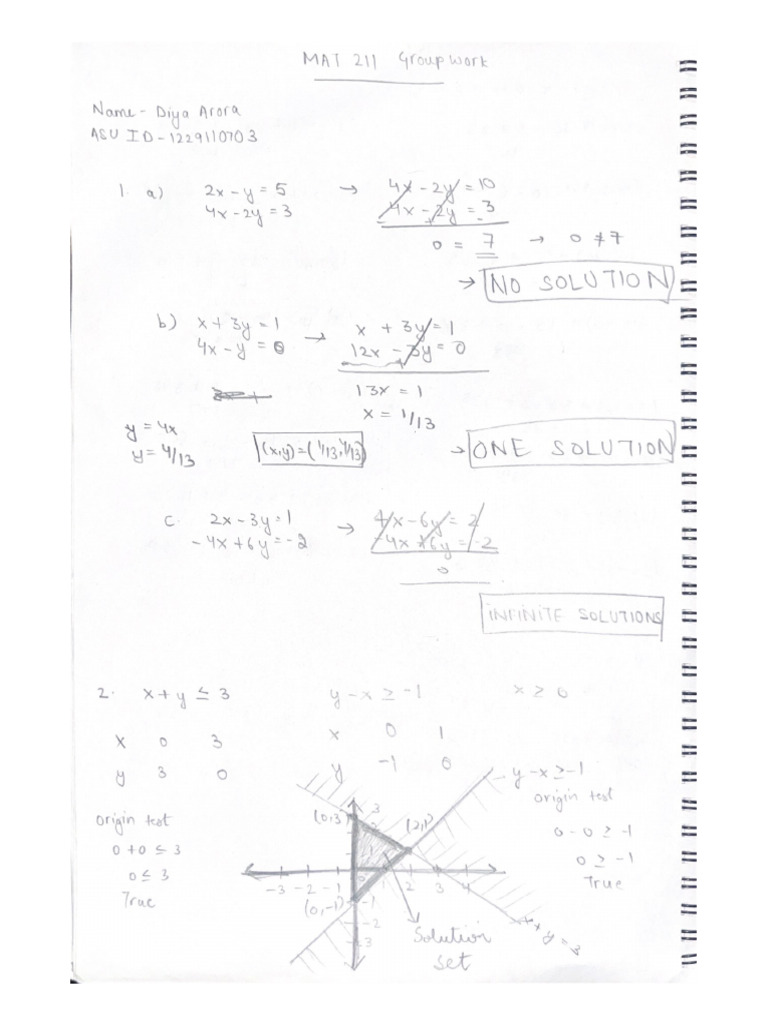 MAT 211 Groupwork
Name - Diya Arora
ASU ID - 1229110703
1. a) 2x - y = 5 → 4x - 2y = 10
4x - 2y = 3 4x - 2y = 3
0 = 7 → 0 ≠ 7
→ NO SOLUTION
b) x + 3y = 1 → x + 3y = 1
4x - y = 0 12x - 3y = 0
13x = 1
x = 1/13
y = 4x
y = 4/13 (x,y) = (1/13, 4/13) → ONE SOLUTION
c. 2x - 3y = 1 → 4x - 6y = 2
-4x + 6y = -2 -4x + 6y = -2
0
INFINITE SOLUTIONS
2. x + y ≤ 3 y - x ≥ -1 x ≥ 0
x 0 3 x 0 1
y 3 0 y -1 0
y - x ≥ -1
origin test
0 - 0 ≥ -1
0 ≥ -1
True
origin test
0 + 0 ≤ 3
0 ≤ 3
True
3
(0,3) (2,1)
-3 -2 -1 0 1 2 3 4
(0,-1) -1
-2
-3
x + y = 3
Solution
set